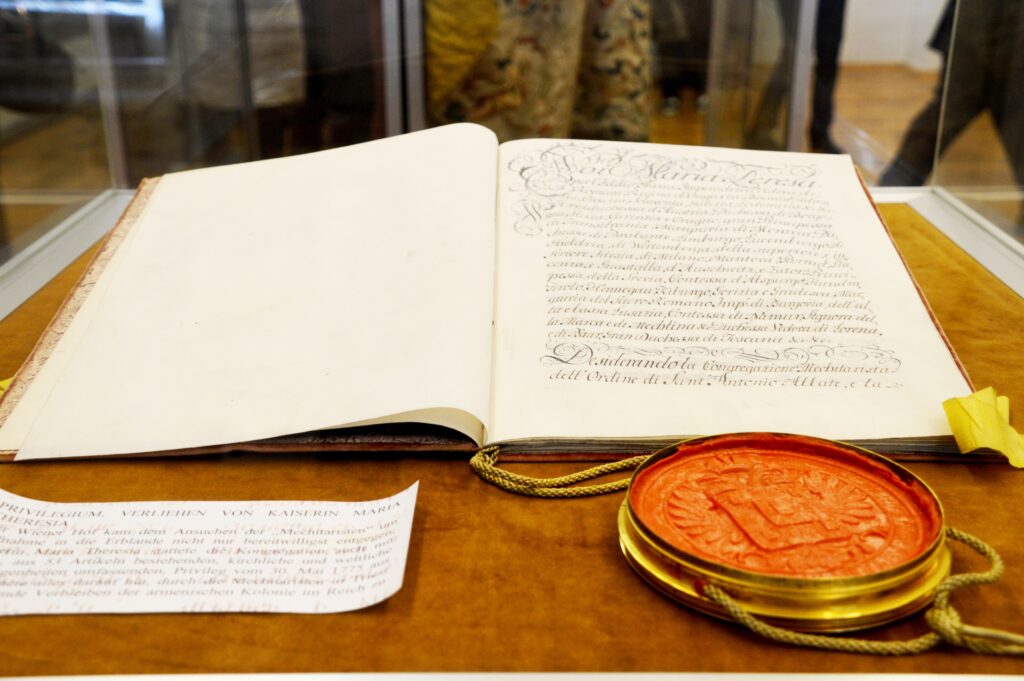 Noi Maria Teresa
per l'Iddio Grazia Imperadrice
d'Austria, Duchessa di Borgo=
gna, Stiria, Carintia e Cragno, gran Principessa
di Transilvania, Margravia di Moravia, Du=
chessa di Brabante, Limburgo, Lucemburgo, di
Gheldria, di Wirtemberga, della superiore, e in=
feriore Slesia, di Milano, Mantova, Parma, Pia=
cenza, e Guastalla, d'Auschwitz, e Zator, Princi=
pessa della Svevia, Contessa d'Abspurgo, Fiandra,
Tirolo, Hennegau, Kiburgo, Gorizia, e Gradisca, Mar=
gravia del Sacro Romano Imp:º di Burgovia, dell'al=
ta e bassa Lusazia, Contessa di Namur, Signora del=
la Marca e di Mechlina &: Duchessa Vedova di Lorena,
e di Barr, Gran Duchessa di Toscana &: &:
Desiderando la Congregazione Mechitarista
dell'Ordine di Sant'Antonio Abbate, e la
PRIVILEGIUM, VERLIEHEN VON KAISERIN MARIA
THERESIA
Wiener Hof kam dem Ansuchen der „Mechitaristen" um
nahme in die Erblande nicht nur bereitwilligst entgegen,
Maria Theresia stattete die Kongregation auch mit
aus 53 Artikeln bestehenden, kirchliche und weltliche
genheiten umfassenden, Privileg vom 30. Mai 1775 aus
alles darauf hin, durch die Mechitaristen in Triest
nde Verbleiben der armenischen Kolonie im Reich zu